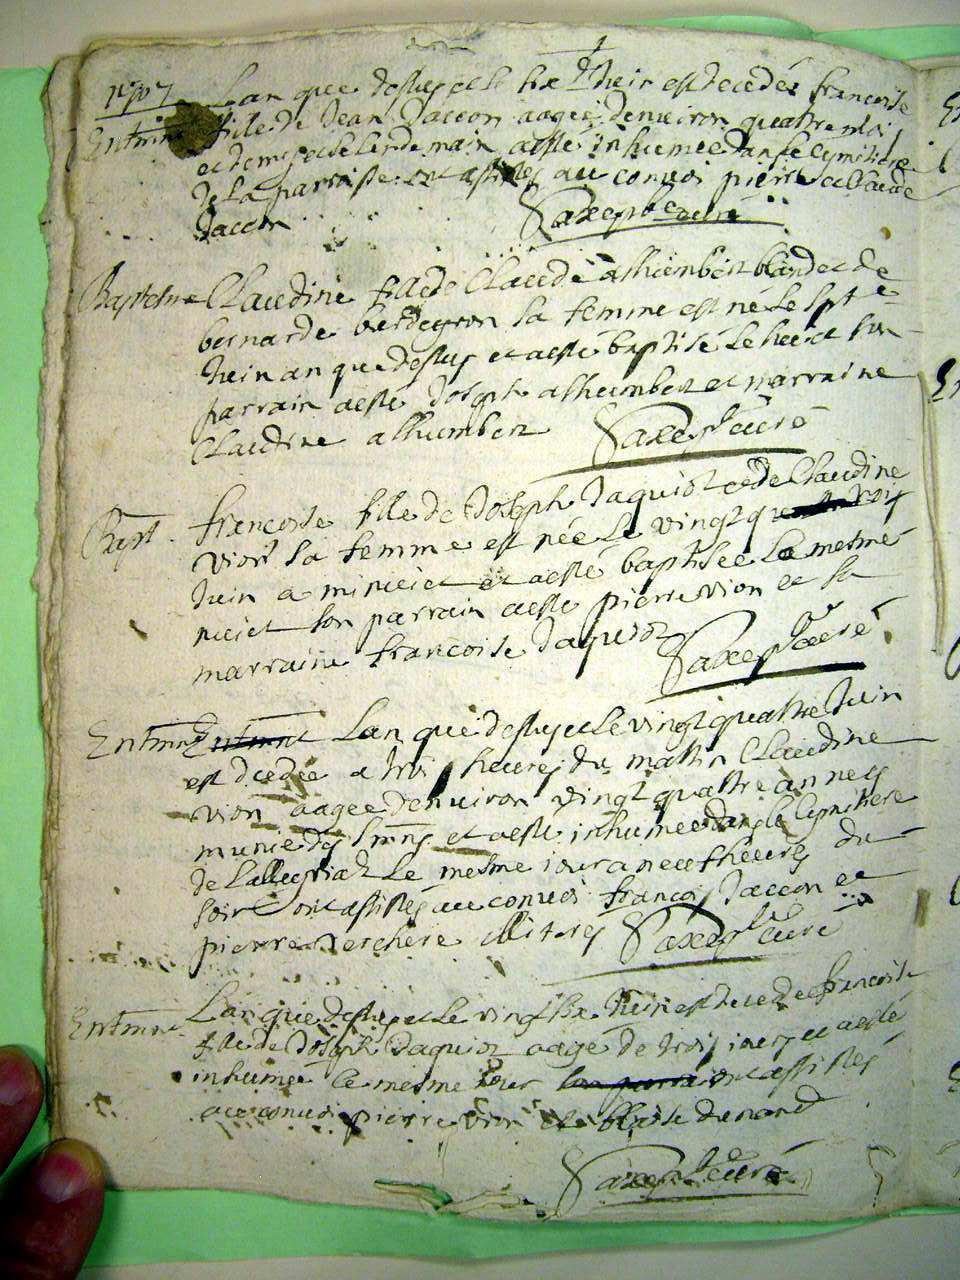 1707
L'an que dessus et le six Juin est decedée francoise
Enterrmt fille de Jean Jaccon aagée denviron quattre mois
et demy et le lendemain a esté inhumée dans le cymitiere
de la parroisse ont assistés au convoi pierre et Claude
Jaccon Saxe ptre curé
Baptesme Claudine fille de Claude alhumbert et de
bernarde berdeyron sa femme est né le sept e
Juin an que dessus et a esté baptisé le huict son
parrain a esté Joseph alhumbert et marraine
Claudine alhumbert Saxe ptre curé
Bapt francoise fille de Joseph Jaquiot et de Claudine
vion sa femme est née le vingt trois
Juin a minuict et a esté baptisée le mesme
nuict son parrain a esté pierre vion et sa
marraine francoise Jaquiot Saxe ptre curé
Entermt Entermt L'an que dessus et le vingt quattre Juin
est decedée a trois heures du mattin Claudine
vion aagée denviron vingt quattre annees
munie des Smns et a esté inhumée dans le cymitiere
de le mesme iour a neuf heures du
soir ont assistés au convoi francois Jaccon et
pierre verchere illiterés Saxe ptre curé
Entermt L'an que dessus et le vingt six Juin est decedée francoise
fille de Joseph Jaquiot aagé de trois iours et a esté
inhumée le mesme iour ont assistés
au convoi pierre vion et blaise dunand
Saxe ptre curé